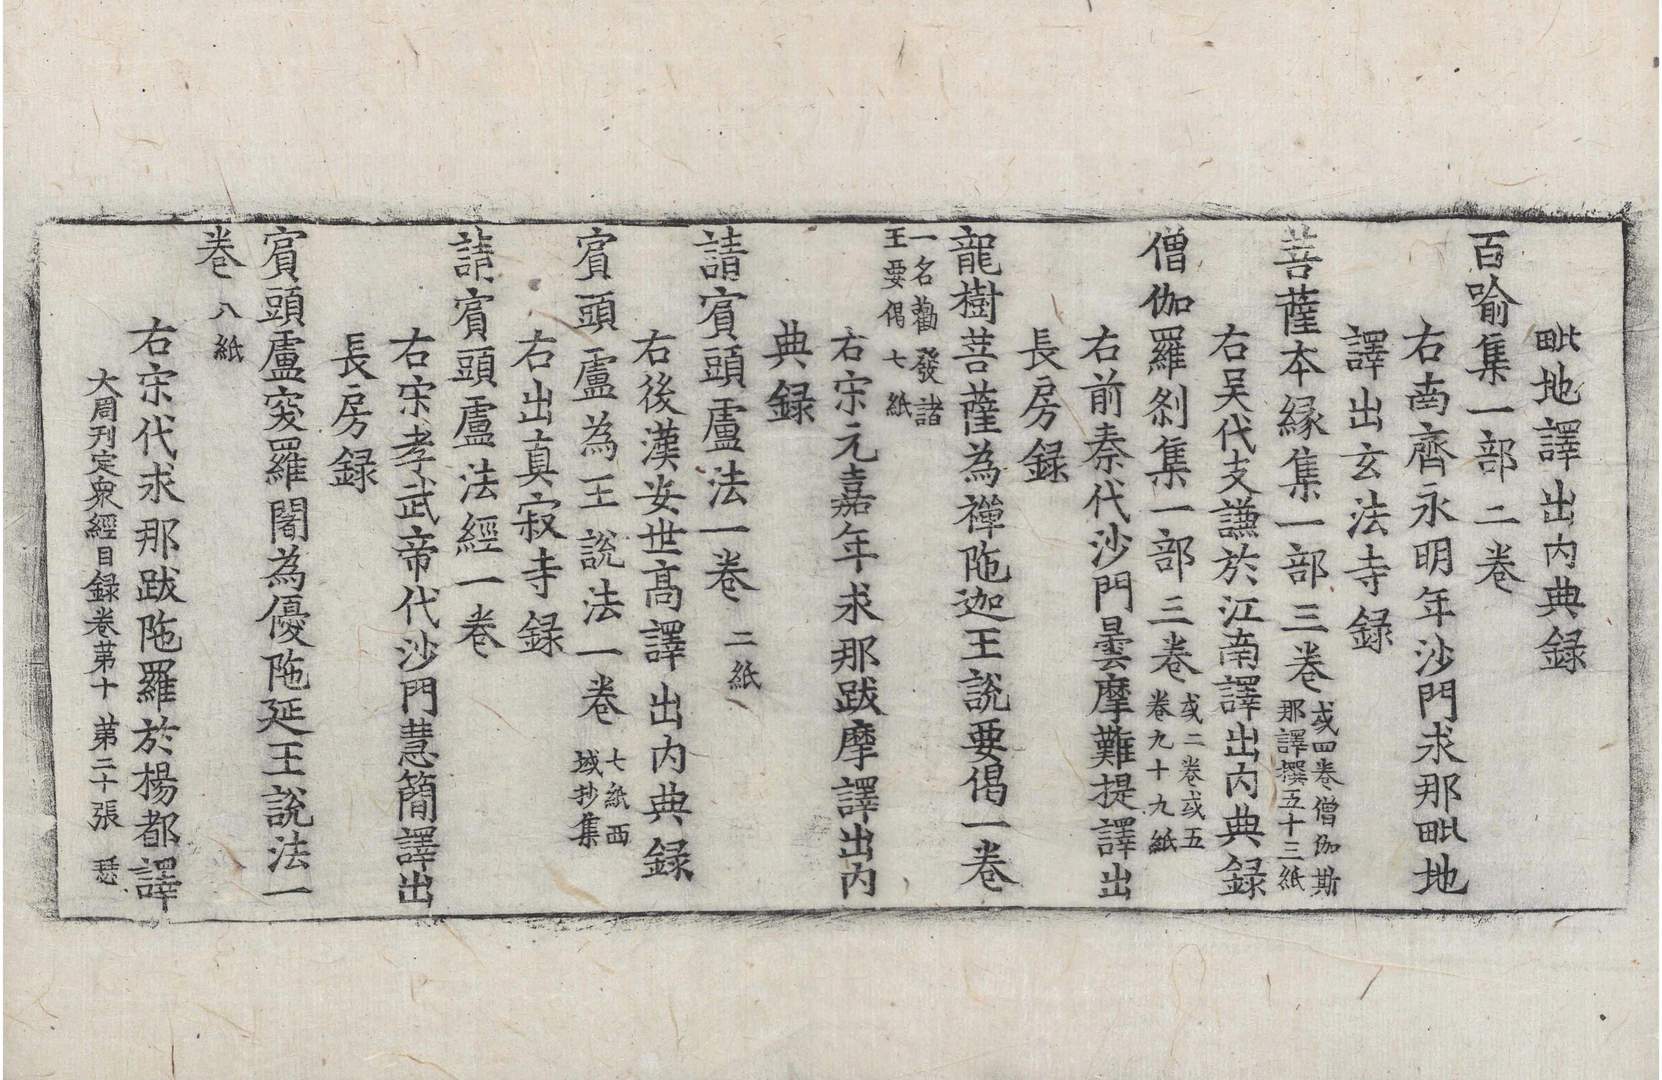 毗地譯出内典録
百喻集一部二卷
右南齊永明年沙門求那毗地
譯出玄法寺録
菩薩本縁集一部三卷 或四卷僧伽斯
那譯撰五十三紙
右吴代支謙於江南譯出内典録
僧伽羅刹集一部三卷 或二卷或五
卷九十九紙
右前秦代沙門曇摩難提譯出
長房録
龍樹菩薩為禪陁迦王說要偈一卷
一名勸發諸
王要偈七紙
右宋元嘉年求那跋摩譯出内
典録
請賓頭盧法一卷 二紙
右後漢安世高譯出内典録
賓頭盧為王説法一卷 七紙西
域抄集
右出真寂寺録
請賓頭盧法經一卷
右宋孝武帝代沙門慧簡譯出
長房録
賓頭盧突羅闍為優陁延王說法一
卷 八紙
右宋代求那跋陁羅於楊都譯
大周刊定衆經目録卷苐十 苐二十張